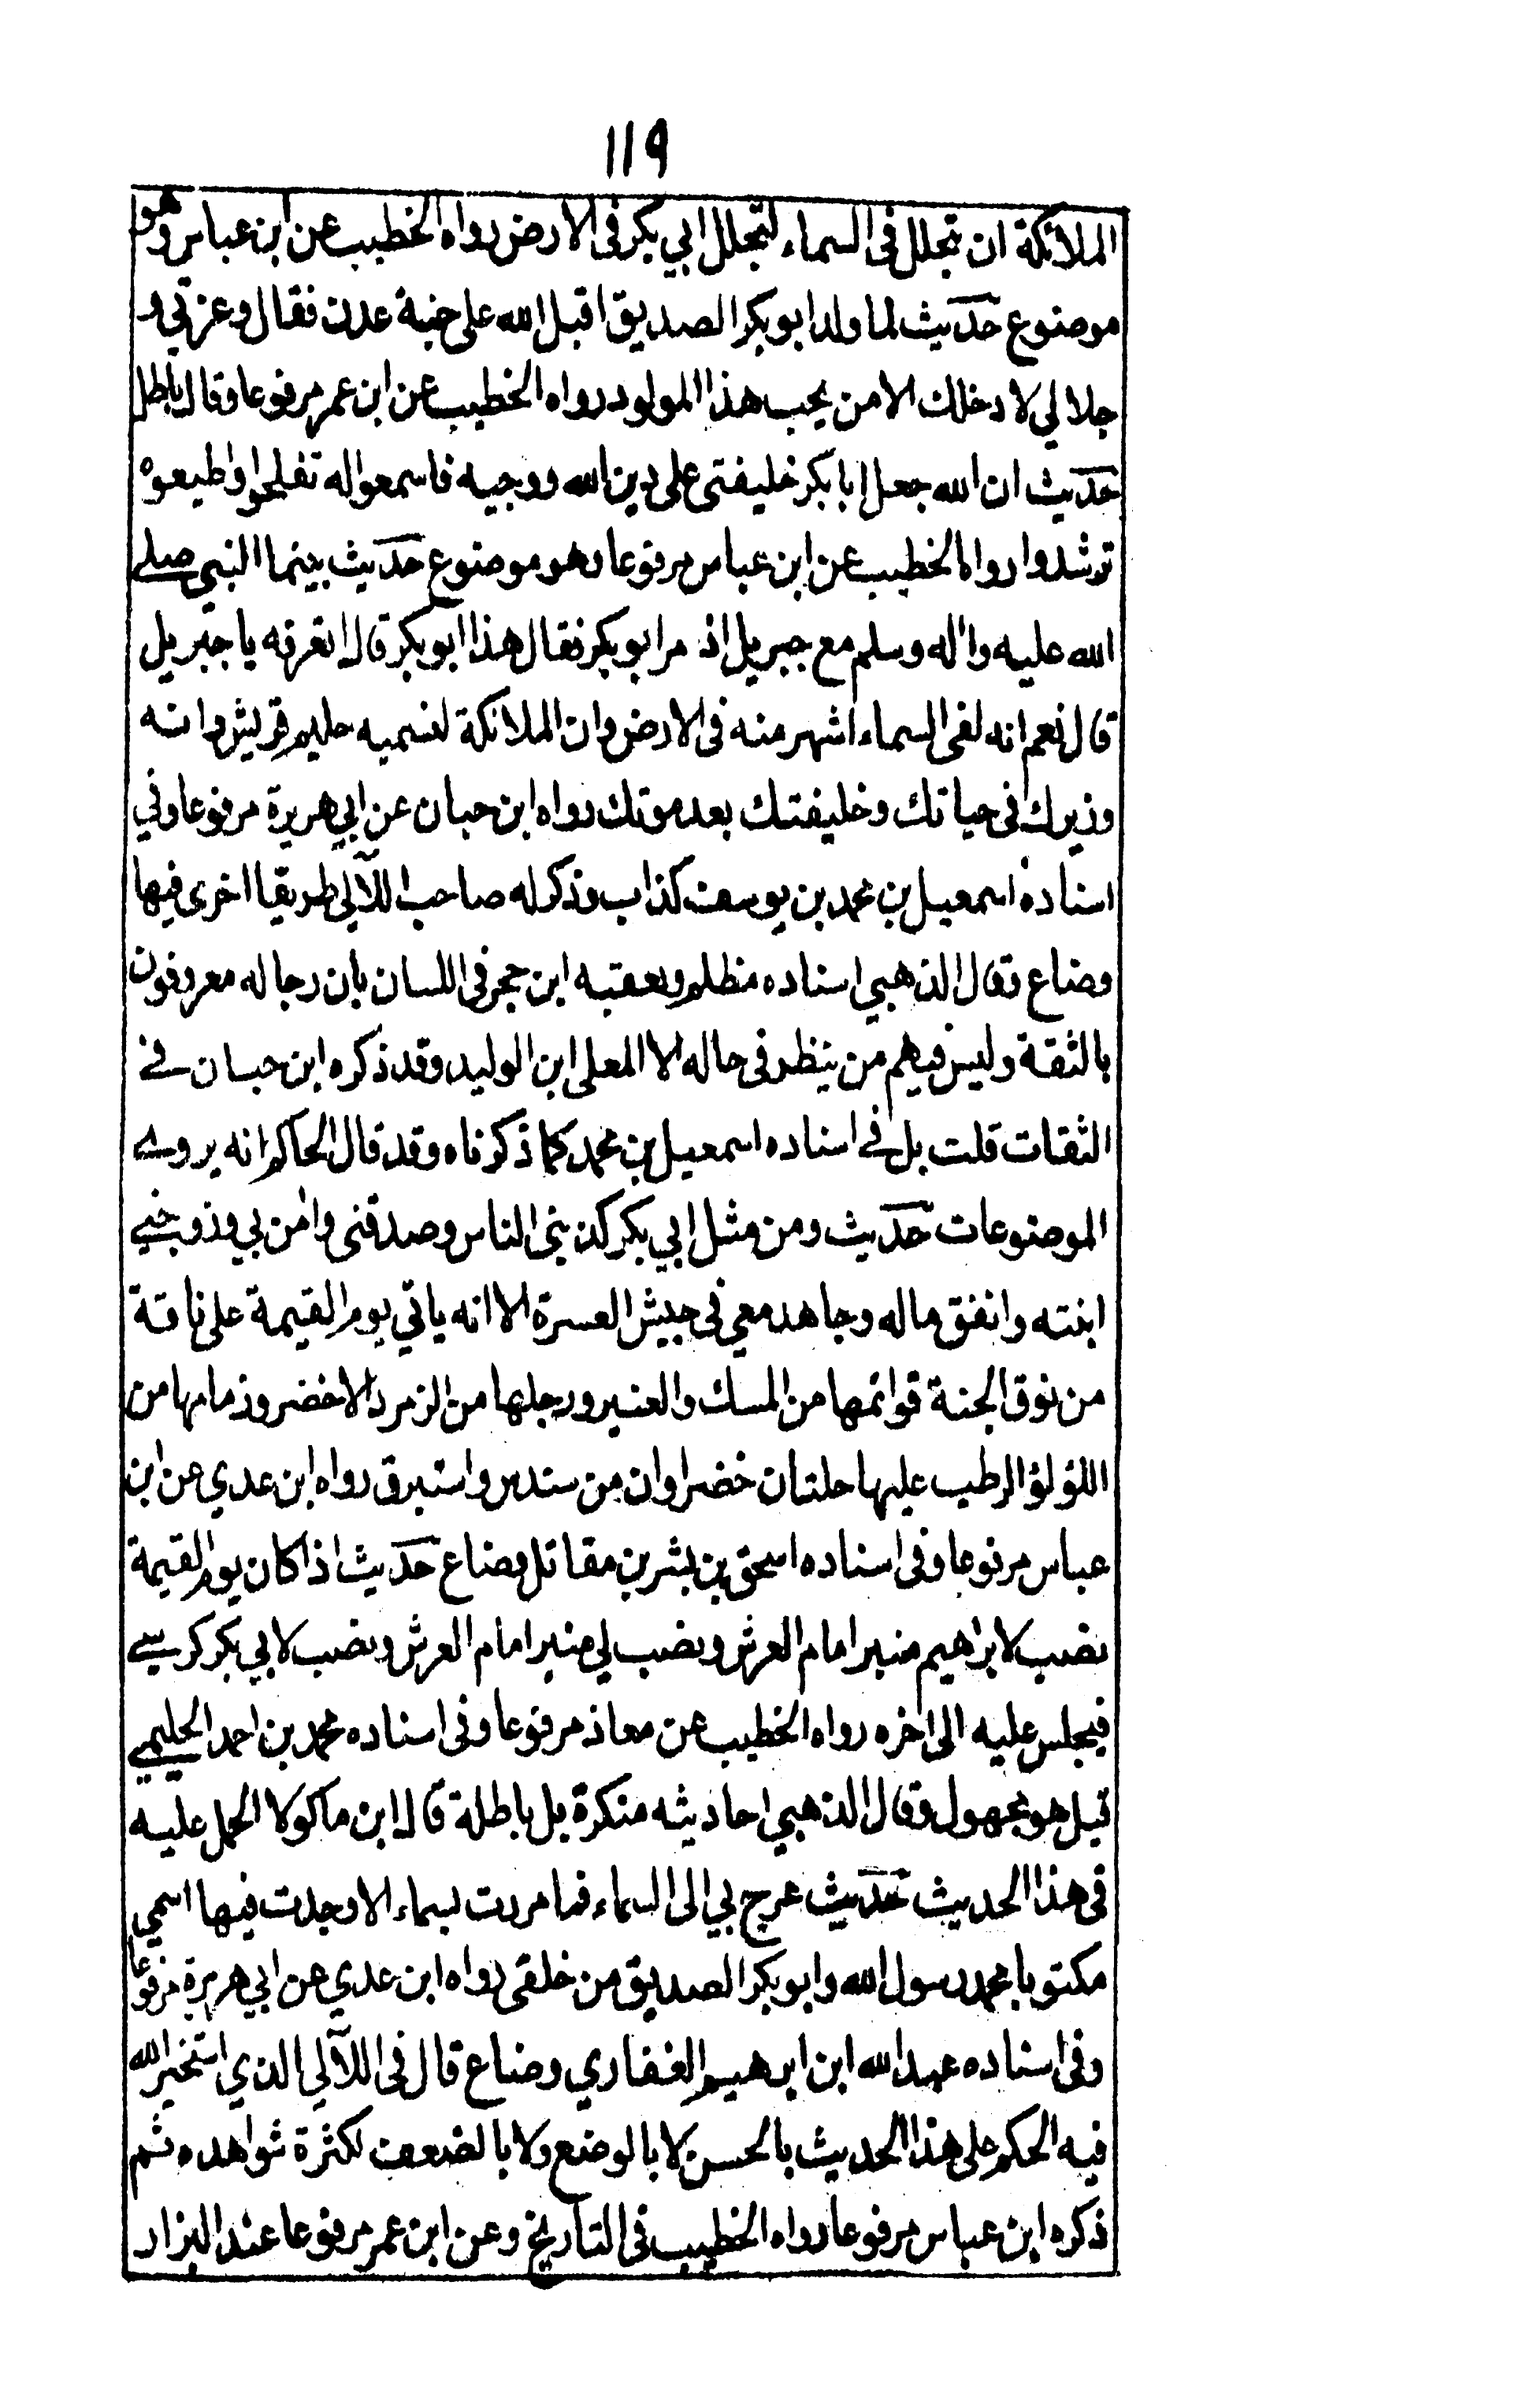 ١١٩
الملائكة ان تجلل فى السماء لتجلل ابي بكر فى الارض رواه الخطيب عن ابن عباس وهو
موضوع حديث لما ولد ابو بكر الصديق اقبل الله على جنة عدن فقال وعزتي و
جلالي لا دخلك الا من يحب هذا المولود رواه الخطيب عن ابن عمر مرفوعا وقال باطل
حديث ان الله جعل ابا بكر خليفتى على دين الله ووحيه فاسمعوا له تفلحوا واطيعوه
ترشدوا رواه الخطيب عن ابن عباس مرفوعا وهو موضوع حديث بينما النبي صلے
الله عليه واٰله وسلم مع جبريل اذ مر ابو بكر فقال هذا ابو بكر قال اتعرفه يا جبريل
قال نعم انه لفى السماء اشهر منه فى الارض وان الملائكة لتسميه حليم قريش وانه
وزيرك فى حياتك وخليفتك بعد موتك رواه ابن حبان عن ابي هريرة مرفوعا وفي
اسناده اسمعيل بن محمد بن يوسف كذاب وذكر له صاحب اللآلي طريقا اخرى فيها
وضاع وقال الذهبي اسناده مظلم وتعقبه ابن حجر فى اللسان بان رجاله معروفون
بالثقة وليس فيهم من ينظر فى حاله الا المعلى ابن الوليد وقد ذكره ابن حبان فے
الثقات قلت بل فے اسناده اسمعيل بن محمد كما ذكرناه وقد قال الحاكم انه يروے
الموضوعات حديث ومن مثل ابي بكر كذبنى الناس وصدقنى واٰمن بي وزوجنے
ابنته وانفق ماله وجاهد معي فى جيش العسرة الا انه ياتي يوم القيمة على ناقة
من نوق الجنة قوائمها من المسك والعنبر ورجلها من الزمرد الاخضر وزمامها من
اللؤلؤ الرطب عليها حلتان خضراوان من سندس واستبرق رواه ابن عدي عن ابن
عباس مرفوعا وفى اسناده اسحق بن بشر بن مقاتل وضاع حديث اذا كان يوم القيمة
نصب لابراهيم منبر امام العرش ونصب لي منبر امام العرش ونصب لابي بكر كرسے
فيجلس عليه الى اخره رواه الخطيب عن معاذ مرفوعا وفى اسناده محمد بن احمد الحليمے
قيل هو مجهول وقال الذهبي احاديثه منكرة بل باطلة قال ابن ماكولا الحمل عليه
فى هذا الحديث حديث عرج بي الى السماء فما مررت بسماء الا وجدت فيها اسمي
مكتوبا محمد رسول الله وابو بكر الصديق من خلفى رواه ابن عدي عن ابي هريرة مرفوعا
وفى اسناده عبد الله ابن ابرهيم الغفاري وضاع قال فى اللآلي الذي استخير الله
فيه الحكم على هذا الحديث بالحسن لا بالوضع ولا بالضعف لكثرة شواهده ثم
ذكره ابن عباس مرفوعا رواه الخطيب فى التاريخ وعن ابن عمر مرفوعا عند البزار